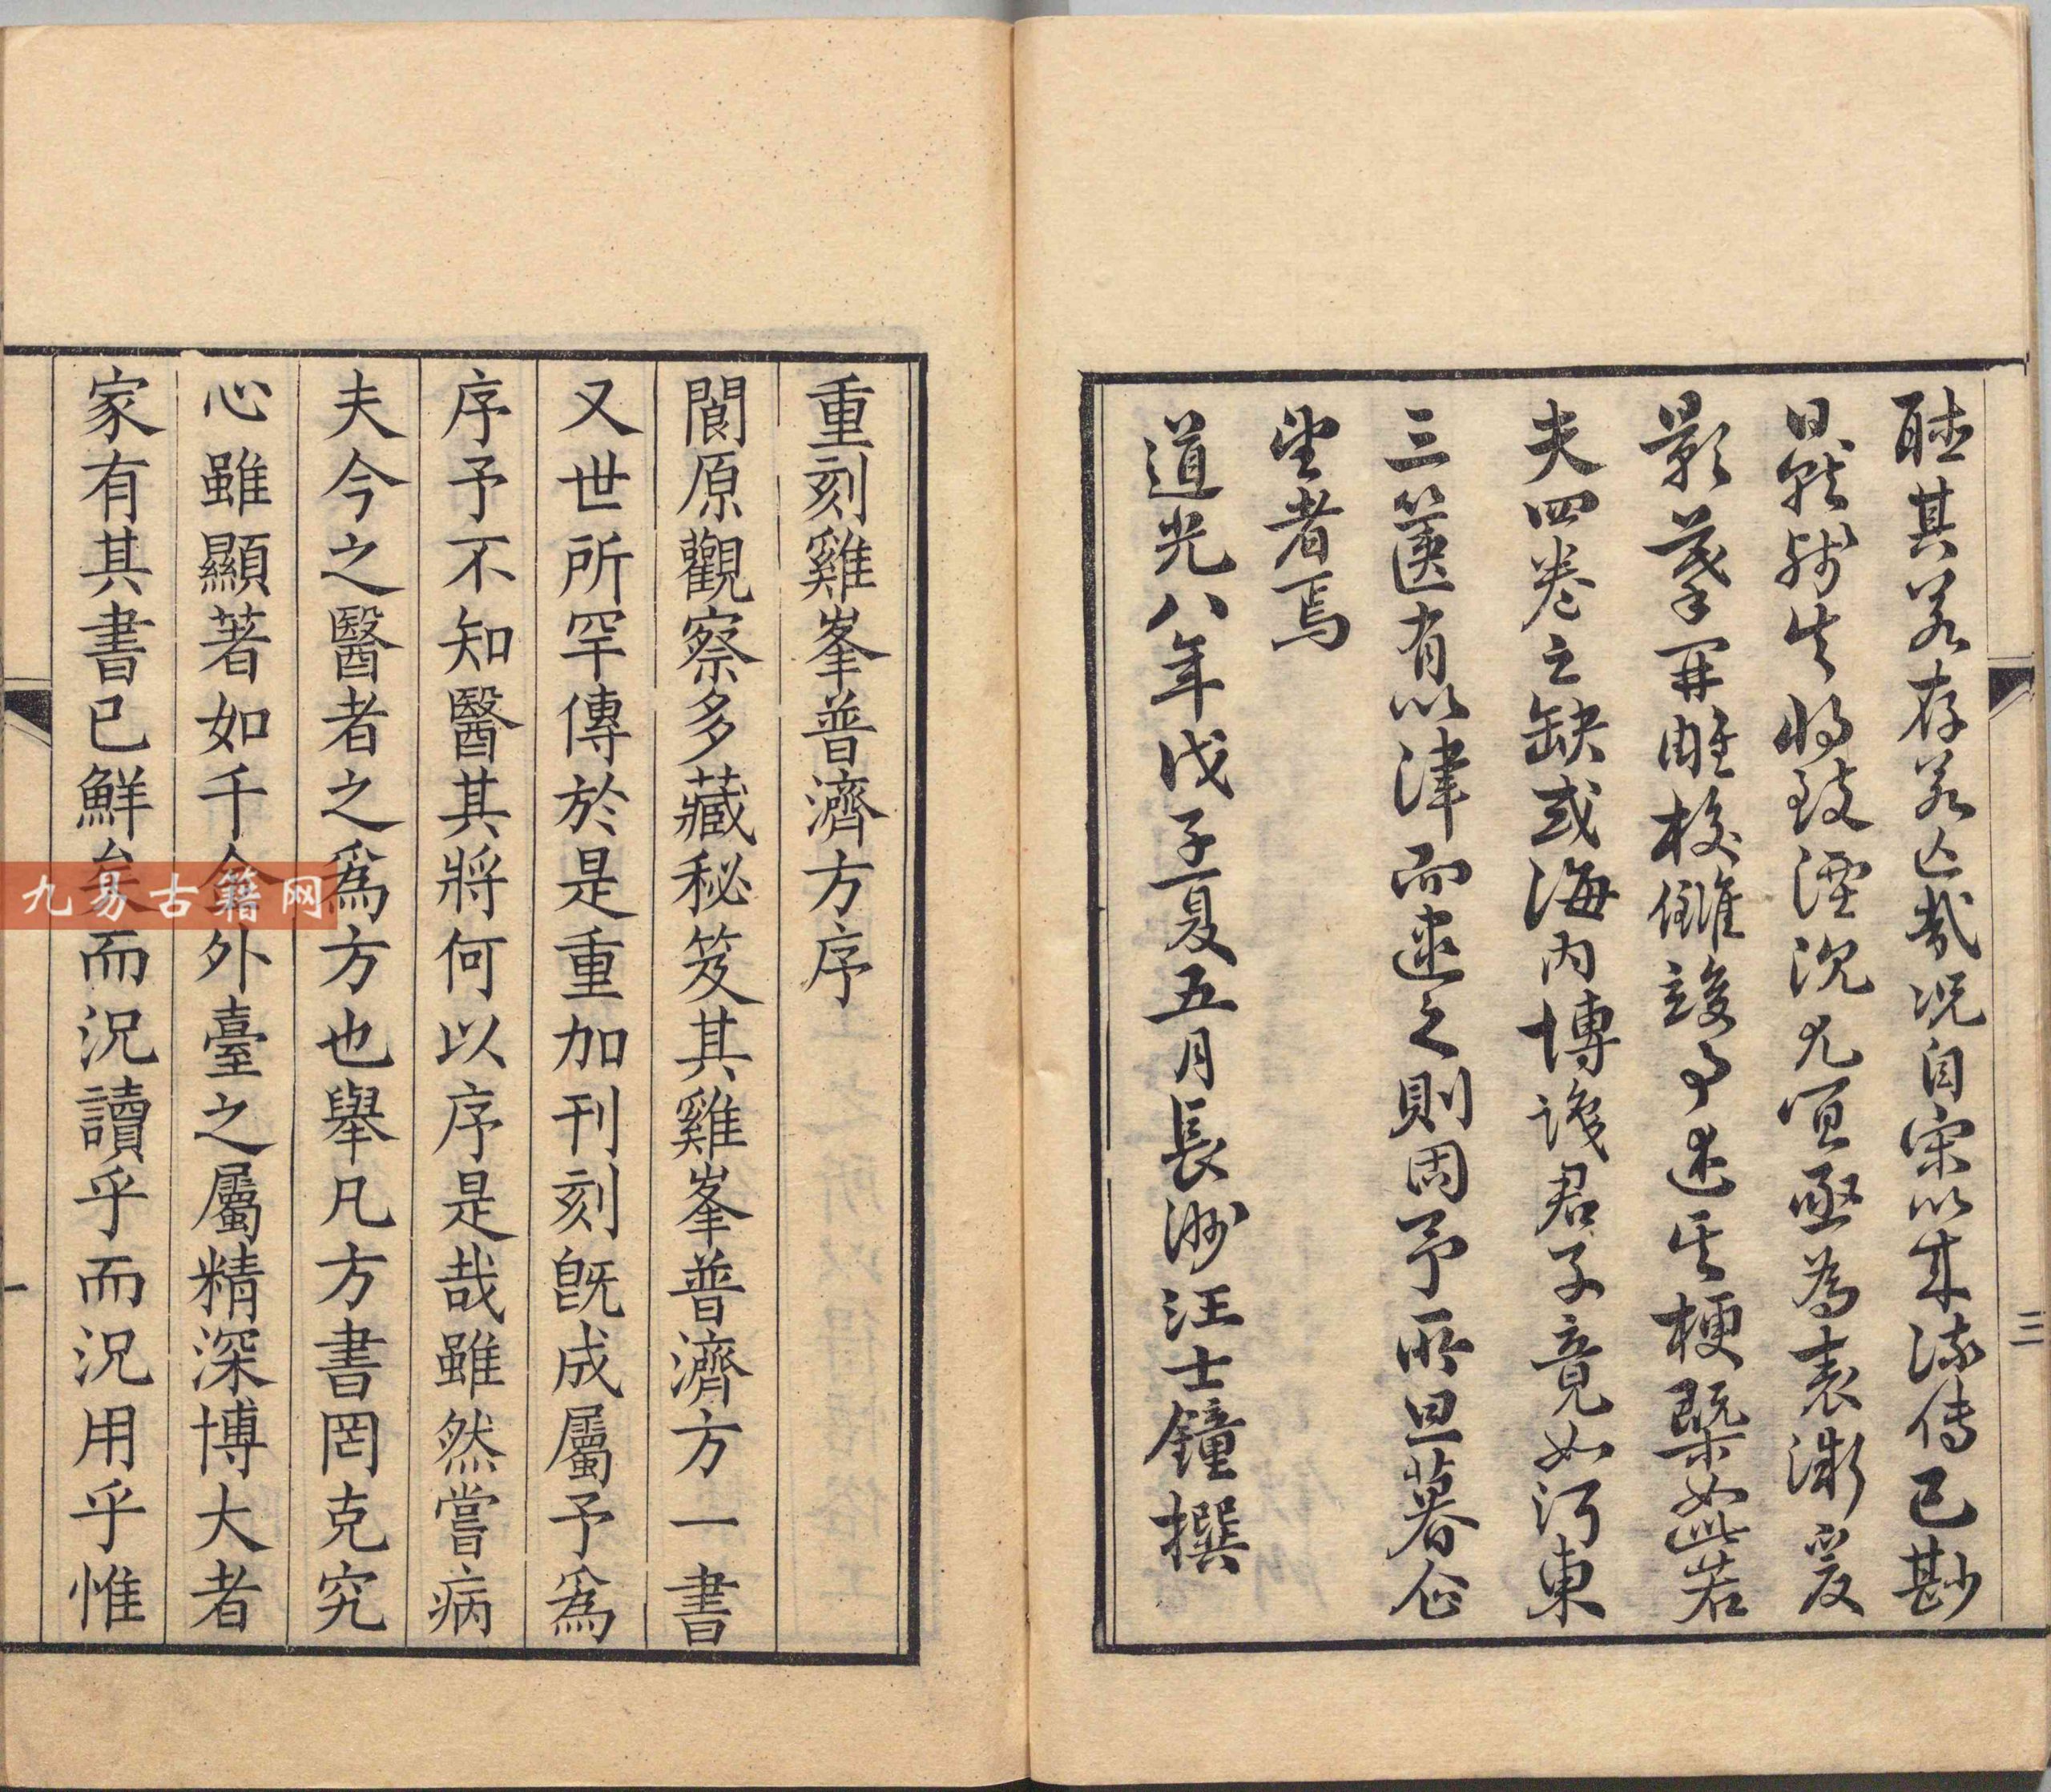 聽其若存若亡哉況自宋以來流傳已尠
日就殘失將致湮沉尤宜亟為表漸爰
影摹開雕校讎竣事述其梗槩如此若
夫四卷之缺或海內博識君子竟如河東
三篋有以津而逮之則固予所旦暮企
望者焉
道光八年戊子夏五月長洲汪士鐘撰
三
重刻雞峯普濟方序
閬原觀察多藏秘笈其雞峯普濟方一書
又世所罕傳於是重加刊刻旣成屬予爲
序予不知醫其將何以序是哉雖然嘗病
夫今之醫者之爲方也舉凡方書罔克究
心雖顯著如千金外臺之屬精深博大者
家有其書已鮮矣而況讀乎而況用乎惟
一
九易古籍网